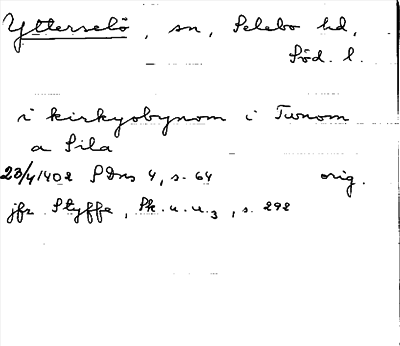 Ytterselö, sn, Selebo hd,
Söd. l.
i kirkyobynom i Tunom
a Sila
23/4 1402 SDns 4, s. 64 orig.
jfr Styffe, Sk. u. u.3, s. 292